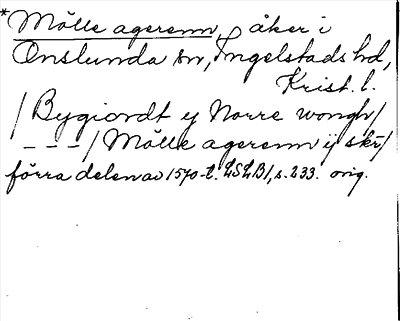 *Mölle agerenn, åker i
Onslunda sn, Ingelstads hd,
Krist. l.
/Bygiordt ej Norre wongh/
_ _ _/Mölle agerenn ij skr/
förra delen av 1570-t. LSLB1, s. 233. orig.